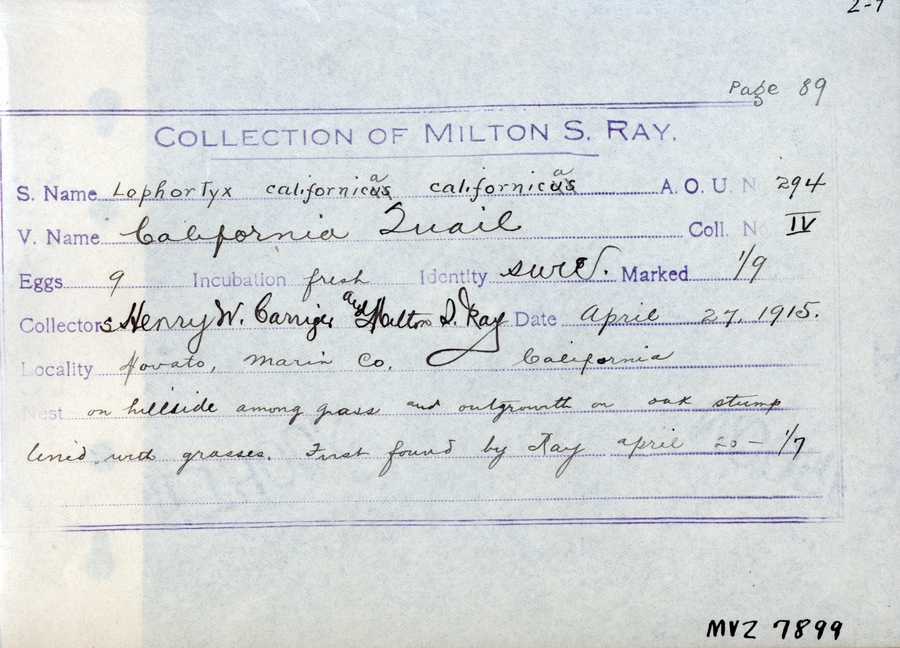 2-7
Page 89
COLLECTION OF MILTON S. RAY.
S. Name Lophortyx californicas californicas A. O. U. N 294
V. Name California Quail Coll. No IV
Eggs 9 Incubation fresh Identity sure. Marked 1/9
Collectors Henry W. Carriger and Milton S. Ray Date April 27, 1915.
Locality Novato, Marin Co. California
Nest on hillside among grass and outgrowth on oak stump
lined with grasses. First found by Ray april 20 – 1/7
MVZ 7899